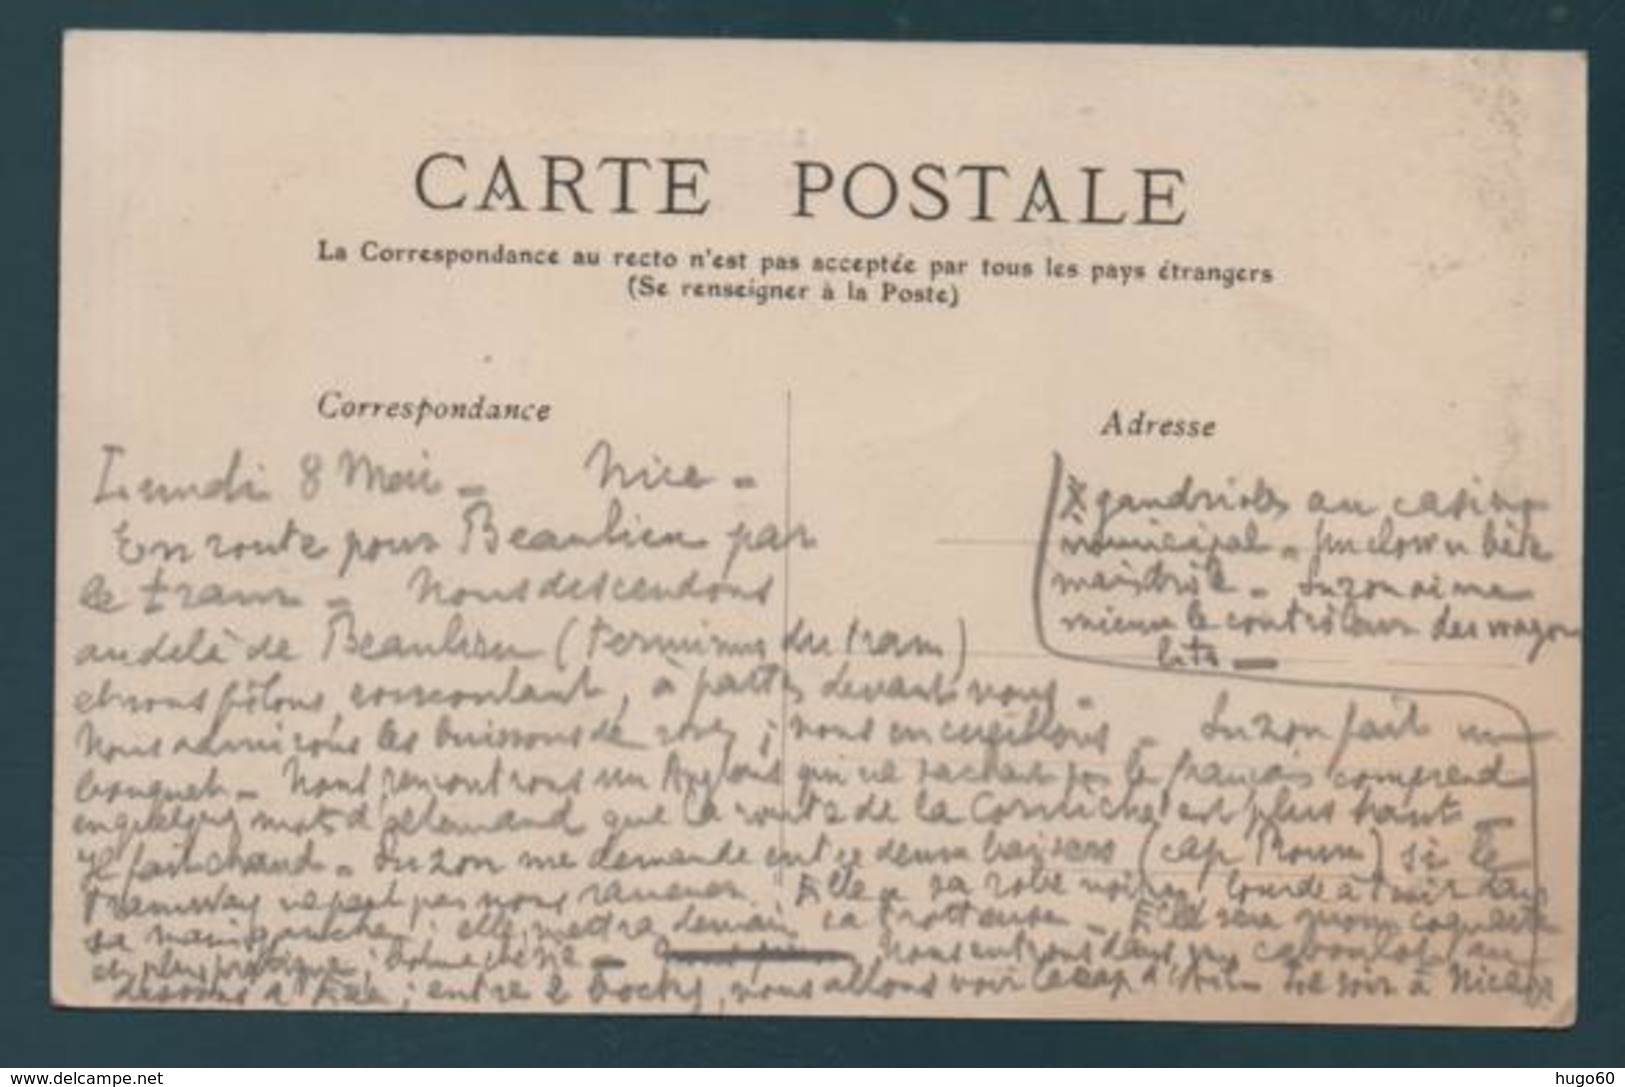 CARTE POSTALE
La Correspondance au recto n'est pas acceptée par tous les pays étrangers
(Se renseigner à la Poste)
Correspondance
Adresse
Lundi 8 Mai - Nice -
En route pour Beaulieu par
le tram - Nous descendons
au delà de Beaulieu (terminus du tram)
et nous filons, à pattes devant nous -
Nous admirons les buissons de roses ; nous en cueillons - Suzon fait un
bouquet - Nous rencontrons un Anglais qui ne sachant pas le français comprend
en quelques mots d'allemand que la route de la Corniche est plus haut -
Il fait chaud - Suzon me demande entre deux baisers (cap Roux) si le
tramway ne peut pas nous ramener. Elle a sa robe noire, lourde à tenir dans
sa main gauche ; elle mettra demain sa trotteuse - Elle sera moins coquette
et plus pratique ; - Nous entrons dans un caboulot au
dessous d'Eze ; entre 2 bocks, nous allons voir le cap d'Ail - Le soir à Nice
X gaudrioles au casino
municipal - Un clown bête
- Suzon aime
mieux le contrôleur des wagons
lits -
www.delcampe.net
hugo60